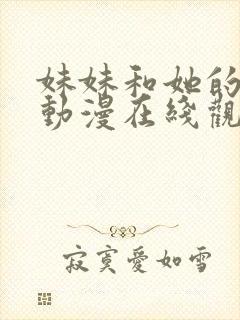 妹妹和她的
動漫在綫觀
寂寞愛如雪